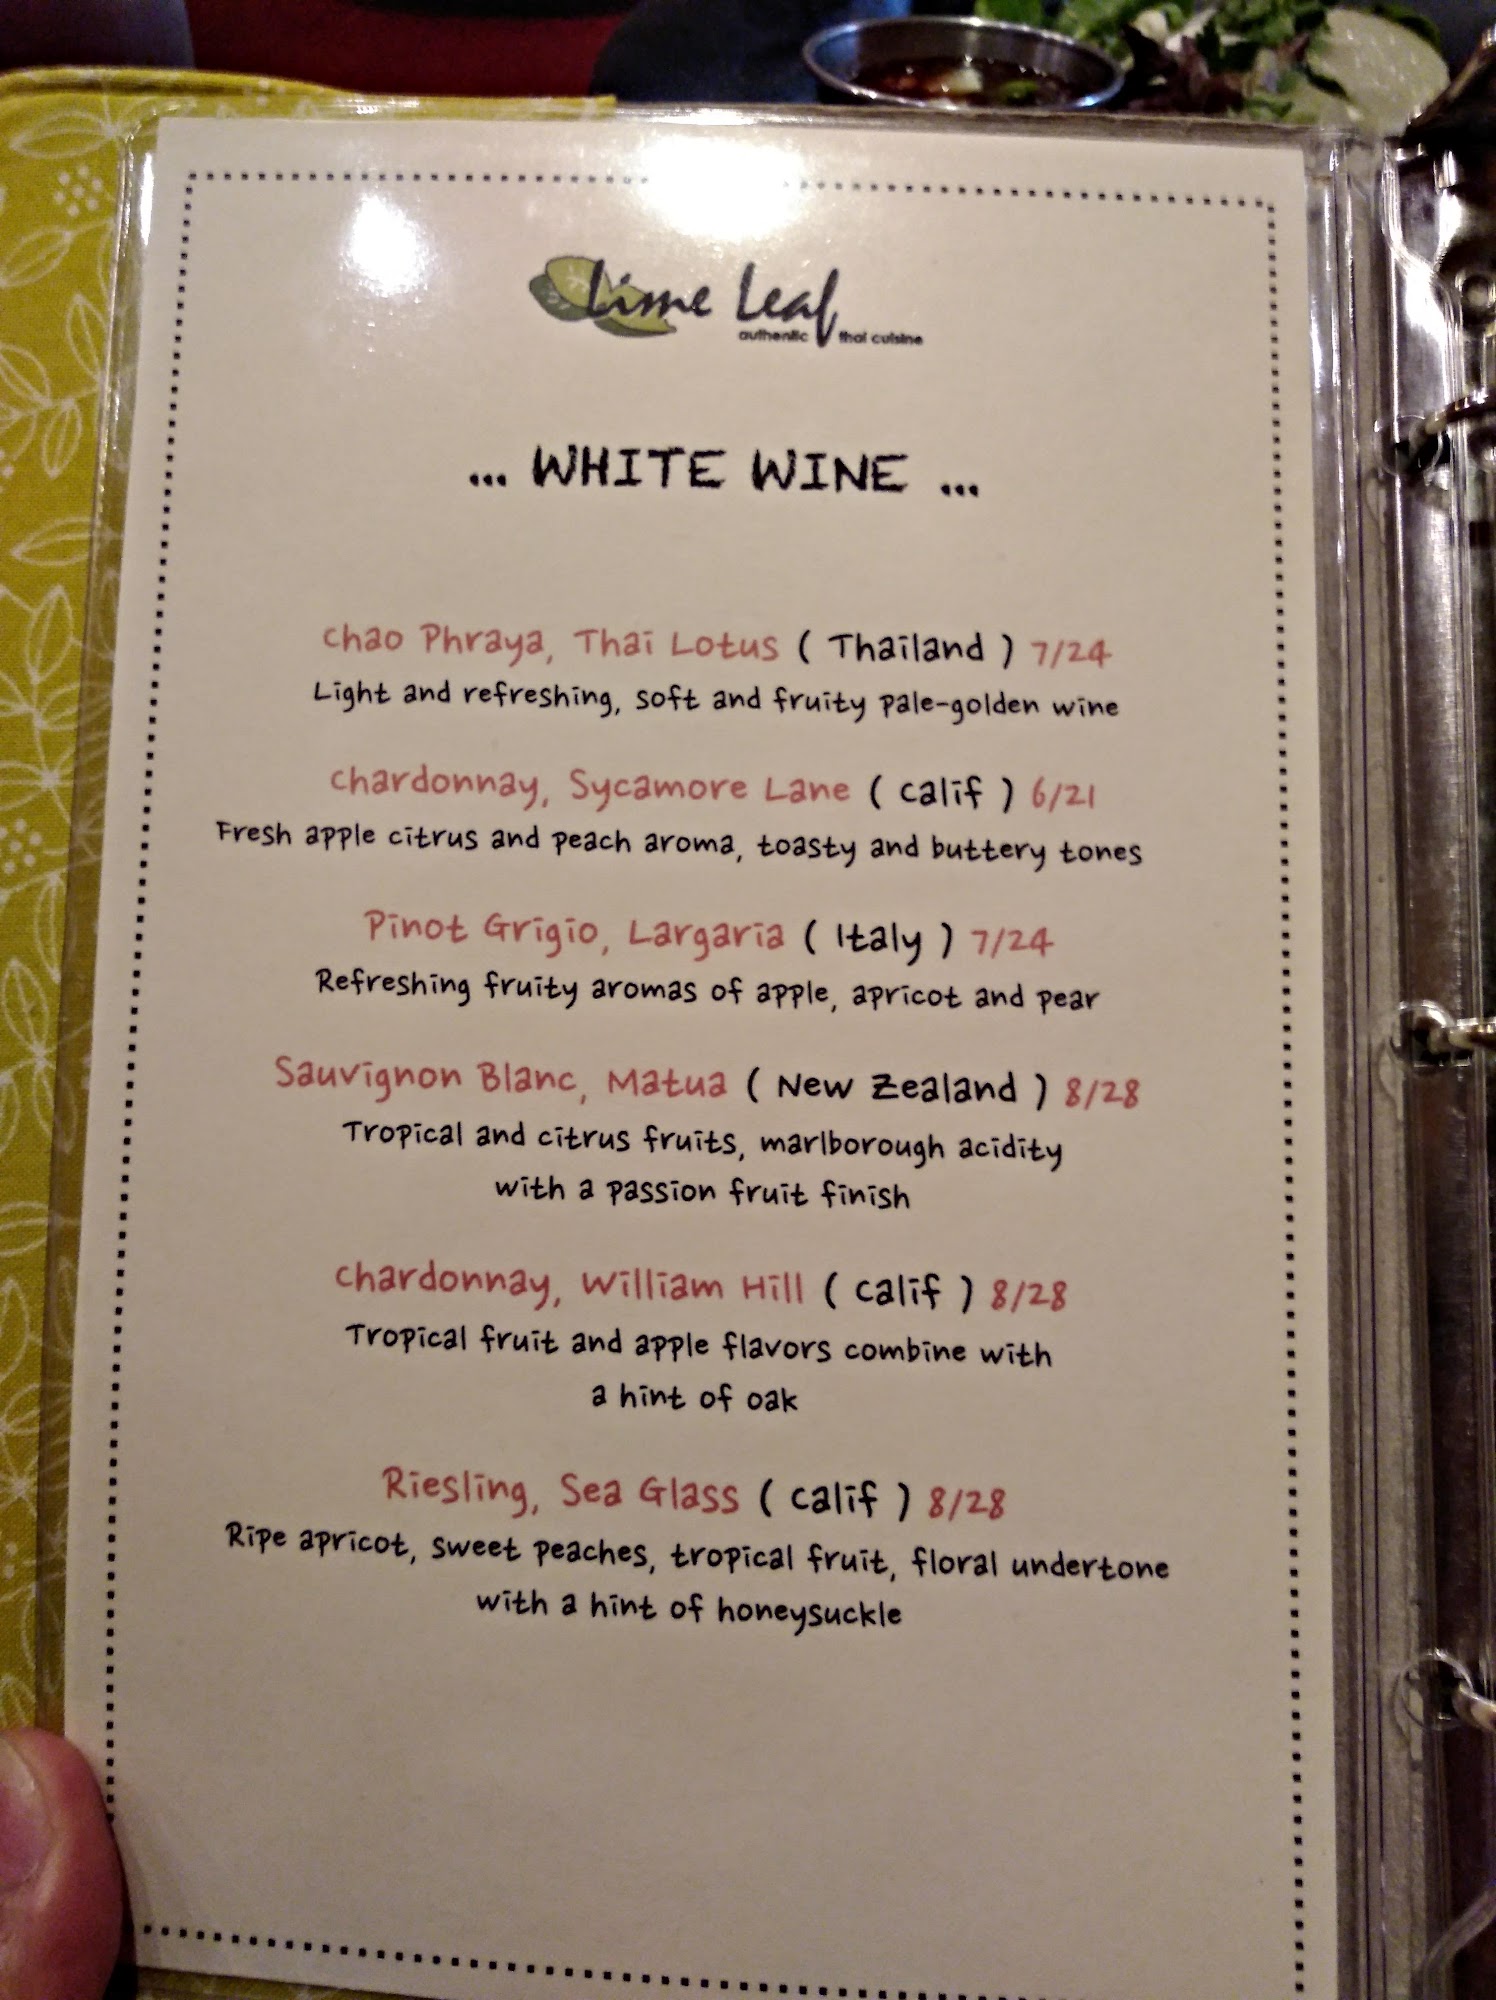 Lime Leaf
authentic thai cuisine
... WHITE WINE ...
Chao Phraya, Thai Lotus ( Thailand ) 7/24
Light and refreshing, soft and fruity pale-golden wine
Chardonnay, Sycamore Lane ( Calif ) 6/21
Fresh apple citrus and peach aroma, toasty and buttery tones
Pinot Grigio, Largaria ( Italy ) 7/24
Refreshing fruity aromas of apple, apricot and pear
Sauvignon Blanc, Matua ( New Zealand ) 8/28
Tropical and citrus fruits, marlborough acidity
with a passion fruit finish
Chardonnay, William Hill ( Calif ) 8/28
Tropical fruit and apple flavors combine with
a hint of oak
Riesling, Sea Glass ( Calif ) 8/28
Ripe apricot, sweet peaches, tropical fruit, floral undertone
with a hint of honeysuckle